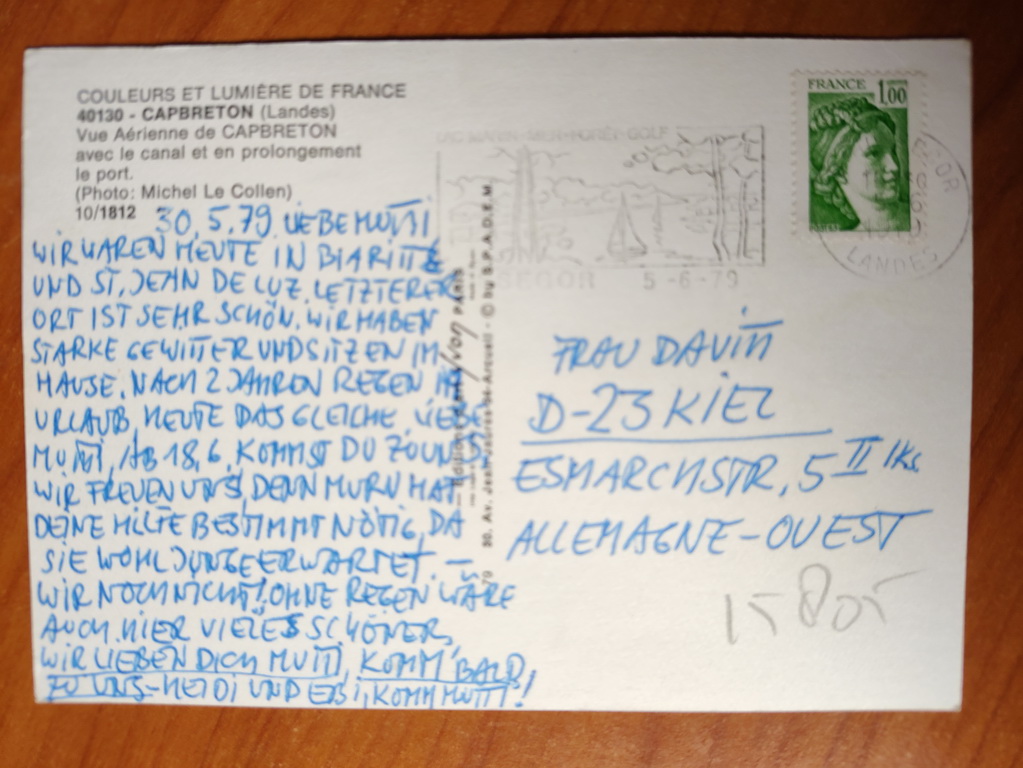 COULEURS ET LUMIÈRE DE FRANCE
40130 - CAPBRETON (Landes)
Vue Aérienne de CAPBRETON
avec le canal et en prolongement
le port.
(Photo: Michel Le Collen)
10/1812
30.5.79 LIEBE MUTTI
WIR WAREN HEUTE IN BIARITTS
UND ST. JEAN DE LUZ. LETZTERER
ORT IST SEHR SCHÖN. WIR HABEN
STARKE GEWITTER UND SITZEN IM
HAUSE. NACH 2 JAHREN REGEN IM
URLAUB, HEUTE DAS GLEICHE. LIEBE
MUTTI, AB 18.6. KOMMST DU ZU UNS.
WIR FREUEN UNS, DENN MURU HAT
DEINE HILFE BESTIMMT NÖTIG, DA
SIE WOHL JUNGE ERWARTET. —
WIR NOCH NICHT! OHNE REGEN WÄRE
AUCH HIER VIELES SCHÖNER.
WIR LIEBEN DICH MUTTI, KOMM' BALD
ZU UNS - HEIDI UND EBI, KOMM MUTTI!
PARIS
30, Av. Jean-Jaurès de Arcueil - © by S.P.A.D.E.M.
79
LAC MARIN-MER-FORÊT-GOLF
SEGOR 5-6-79
FRANCE 1,00
LANDES
FRAU DAVITT
D-23 KIEL
ESMARCHSTR. 5 II lks
ALLEMAGNE-OUEST
15 805